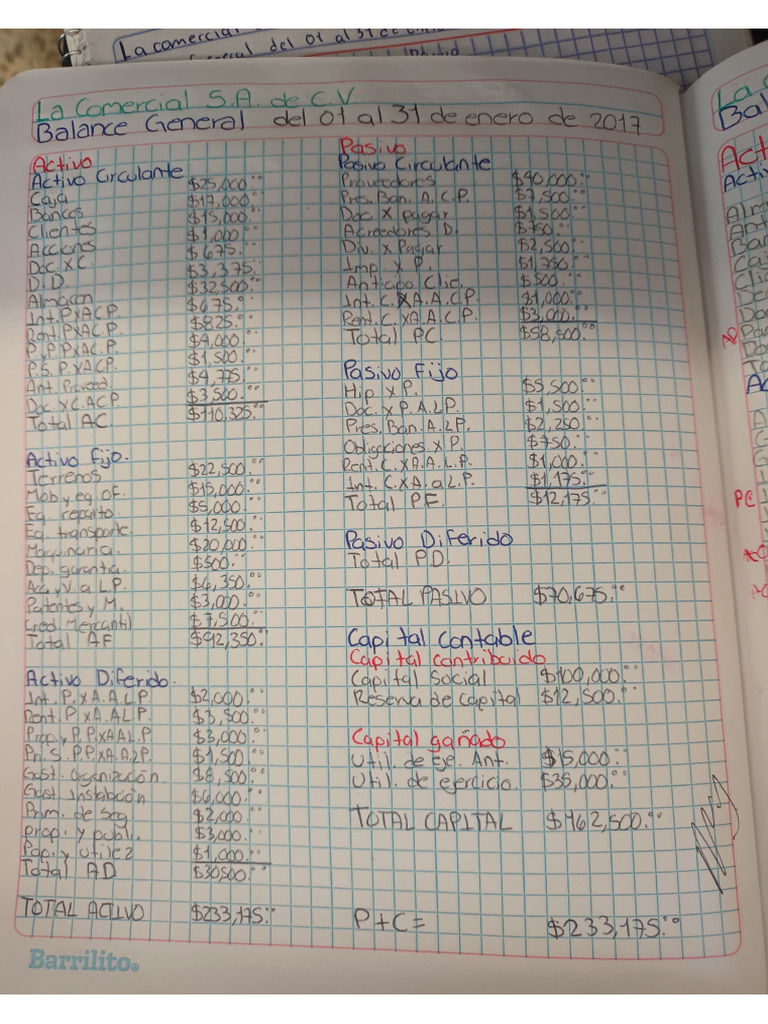 La comercial
General del 01 al 31 de
La Comercial S.A. de C.V
Balance General del 01 al 31 de enero de 2017
Activo
Activo Circulante
Caja $25,000.00
Bancos $17,000.00
Clientes $15,000.00
Acciones $1,000.00
Doc. x C. $675.00
D.D. $3,375.00
Almacen $32,500.00
Int. P x A C P. $675.00
Rent. P x A C P. $825.00
P. y P P x A C. P. $4,000.00
P. S. P. x A C P. $1,500.00
Ant. Proveed. $4,775.00
Doc. x C. A C P $3,500.00
Total AC. $110,325.00
Activo fijo.
Terrenos $22,500.00
Mob y eq. OF. $15,000.00
Eq. reparto. $5,000.00
Eq. transporte. $12,500.00
Maquinaria. $20,000.00
Dep. garantia. $500.00
Ac. y V. a L P. $6,350.00
Patentes y M. $3,000.00
Cred. Mercantil $7,500.00
Total AF $92,350.00
Activo Diferido.
Int. P. x A. A L P. $2,000.00
Rent. P. x A. A L P. $3,500.00
Prop. y P. P x A A L P $3,000.00
Pri. S. P. P x A. A L P. $1,500.00
Gast. Organización. $8,500.00
Gast Instalación $6,000.00
Prim. de Seg $2,000.00
prop. y publi. $3,000.00
Pap. y utilez $1,000.00
Total AD $30,500.00
TOTAL ACTIVO $233,175.00
Pasivo
Pasivo Circulante
Proveedores $40,000.00
Pres. Ban. A. C. P. $7,500.00
Doc x pagar $1,500.00
Acreedores D. $750.00
Div. x Pagar $2,500.00
Imp. x P. $1,750.00
Anticipo Clie. $500.00
Int. C. x A. A. C. P. $1,000.00
Rent. C. x A A. C. P. $3,000.00
Total PC. $58,500.00
Pasivo Fijo
Hip x P. $5,500.00
Doc. x P. A. L P. $1,500.00
Pres. Ban. A. L P. $2,250.00
Obligaciones x P. $750.00
Rent. C. x A. A. L. P. $1,000.00
Int. C. x A. a L. P. $1,175.00
Total PF. $12,175.00
Pasivo Diferido
Total PD.
TOTAL PASIVO $70,675.00
Capital Contable
Capital contribuido
Capital Social $100,000.00
Reserva de capital $12,500.00
Capital gañado
Util. de Eje. Ant. $15,000.00
Util. de ejercicio. $35,000.00
TOTAL CAPITAL $162,500.00
P+C= $233,175.00
Barrilito
La C
Bal
Act
Activ
Alm
Ant
Ban
Caj
Clie
PC